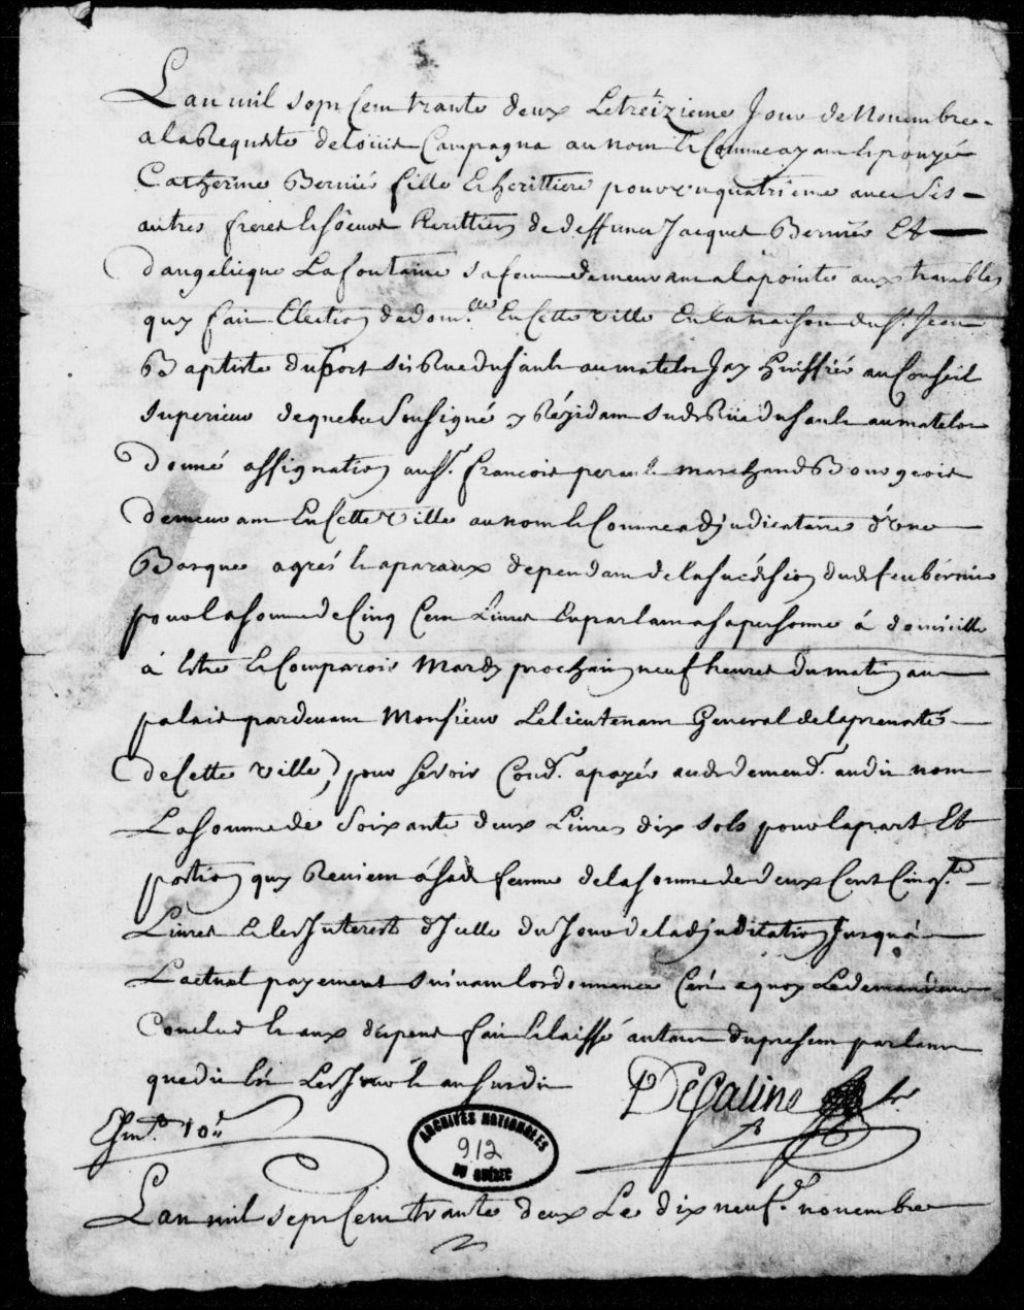 Lan mil sept Cem trante deux Le treizieme Jour de Nouembre
a la Requeste de Loüis Campagna au nom & Comme ayam Epouzé
Catherine Bernié fille & herittiere pour un quatrieme auec Ses
autres freres & soeurs herittiers de deffunct Jacques Bernié Et
d'angelique Lafontaine sa femme demeuram a la pointe aux trambles
quy fait Election de dom.lle En Cette ville En la maison du Sr. Jean
Baptiste duport sis Rue du sault au matelot Jay huissier au Conseil
Superieur de quebec Soussigné y Rézidam sud. Rüe du sault au matelot
Donné assignation au Sr. francois marchand Bourgeois
demeuram En Cette ville au nom & Comme adjudicataire d'une
Barque agrés & aparaux dependam de la sucession dud. feu bérnié
pour la somme de Cinq Cem Liures En parlam a sa personne á domicille
á Estre & Comparoir Mardy prochain neuf heures du matin au
palais pardeuam Monsieur Le lieutenam General de la preuosté
de Cette ville, pour se voir Cond. a payér aud. demend. audit nom
La somme de Soixante deux Liures dix sols pour la part Et
portion quy Reuiem á sad. femme de la somme de deux Cent Cinq.te
Liures & les Interest d'Icelle du Jour de la djuditation Jusqu'á
L'actuel payement suiuam lordonnance a quoy Le demandeur
Conclud & aux dépens fait & laissé autam du presem parlam
que dit est Les Jour & an susdit
DeGaline hr.
10s
ARCHIVES NATIONALES
912
DU QUÉBEC
Lan mil sept Cem trante deux Le dix neuf.e nouembre